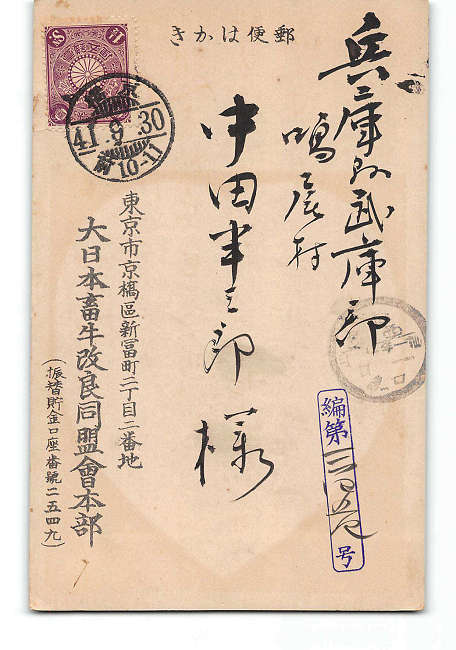 郵便はかき
兵庫縣武庫郡
鳴尾村
中田半三郎様
東京市京橋區新冨町二丁目二番地
大日本畜牛改良同盟會本部
（振替貯金口座番號二五四九）
41.9.30
前10-11
編第
号